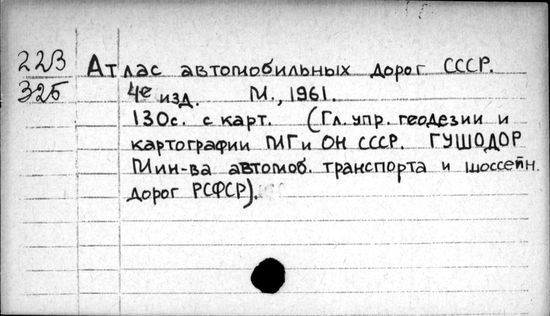 223 Атлас автомобильных дорог СССР.
325 4е изд. М., 1961.
130с. с карт. (Гл. упр. геодезии и
картографии МГ и ОН СССР. ГУШОДОР
Мин-ва автомоб. транспорта и шоссейн.
дорог РСФСР).